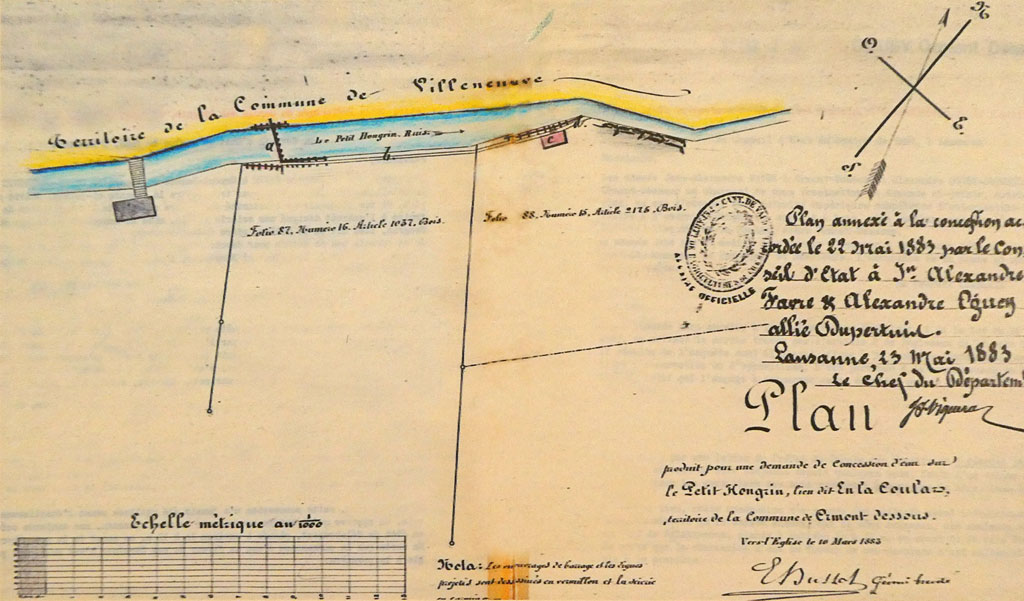 Territoire de la Commune de Villeneuve
O.
E.
S.
Le Petit Hongrin. Ruis.
a
b.
c
d.
Folio 87. Numéro 16. Article 1037. Bois.
Folio 88. Numéro 15. Article 2175. Bois.
CANT. DE VAUD
OFFICIELLE
Plan annexé à la concession ac
ordée le 22 Mai 1883 par le Con
seil d'Etat à Jn Alexandre
Favre & Alexandre
allié Dupertuis.
Lausanne, 23 Mai 1883
Le Chef du Départem
Plan
produit pour une demande de Concession d'eau sur
le Petit Hongrin, lieu dit En la Coulaz,
territoire de la Commune d'Ormont dessous.
Vers-l'Eglise le 10 Mars 1883
Géomè breveté
Echelle métrique au 1/1000
Nota: Les ouvrages de barrage et les digues
projetés sont dessinés en vermillon et la scierie
en carmin